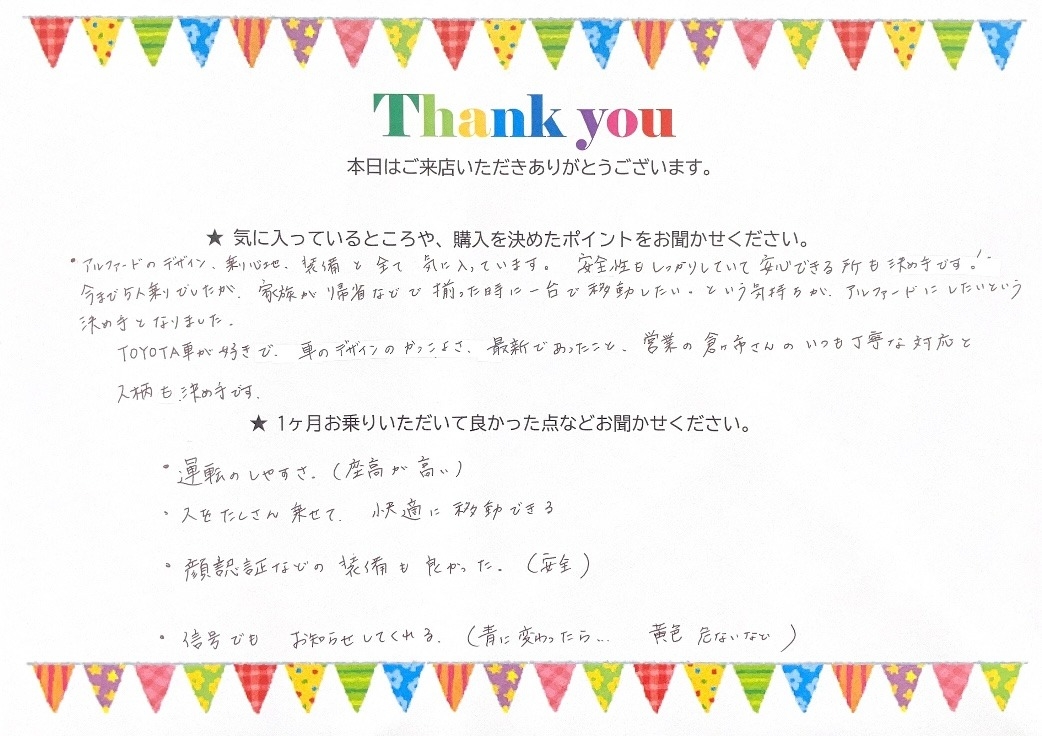 Thank you
本日はご来店いただきありがとうございます。
★ 気に入っているところや、購入を決めたポイントをお聞かせください。
・アルファードのデザイン、乗り心地、装備と全て気に入っています。 安全性もしっかりしていて安心できる所も決め手です!
今まで5人乗りでしたが、家族が帰省などで揃った時に一台で移動したい。という気持ちが、アルファードにしたいという
決め手となりました。
TOYOTA車が好きで、車のデザインのかっこよさ、最新であったこと、営業の さんのいつも丁寧な対応と
人柄も決め手です。
★ 1ヶ月お乗りいただいて良かった点などお聞かせください。
・運転のしやすさ。(座高が高い)
・人をたくさん乗せて、快適に移動できる
・顔認証などの装備も良かった。(安全)
・信号でも お知らせしてくれる。(青に変わったら... 黄色 危ないなど)